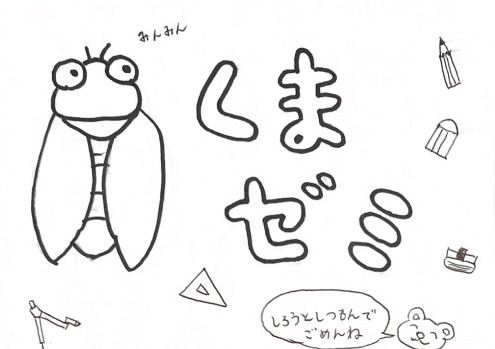 みんみん
くま
ゼミ
しろうとしつもんで
ごめんね